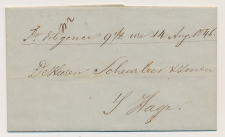 Pr diligence 9½ ure 14 Aug 1846.
De Heeren Scheurleer & Zonen
S Hage